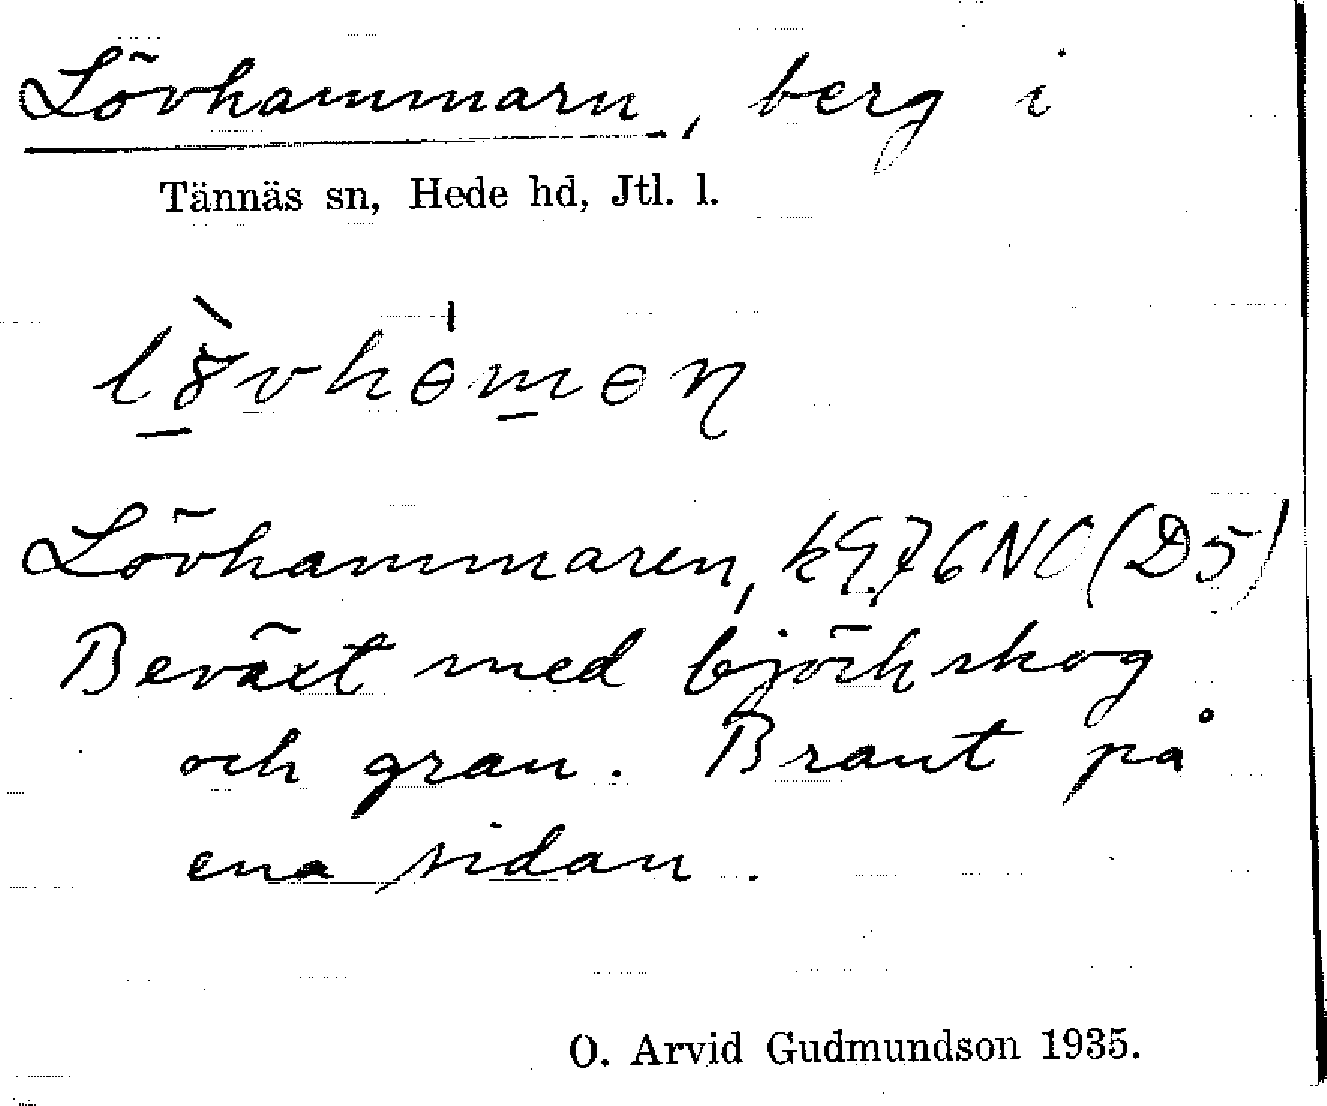 Lövhammarn, berg i
Tännäs sn, Hede hd, Jtl. l.
Lövhammaren, NO (D5)
Beväxt med björkskog
och gran. Brant på
ena sidan.
O. Arvid Gudmundson 1935.